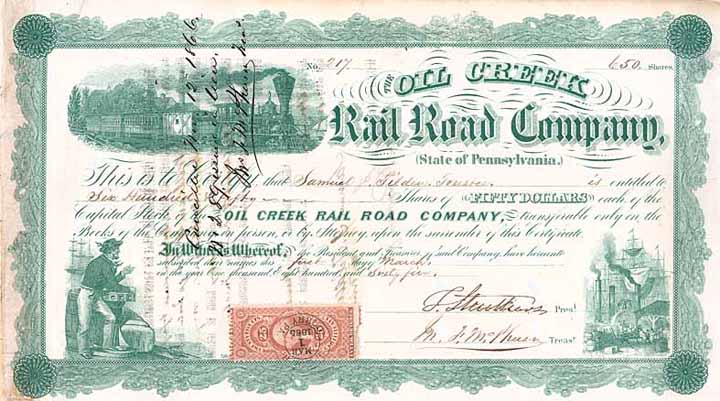 No. 217
650 Shares
THE OIL CREEK
Rail Road Company,
(State of Pennsylvania.)
This is to Certify, that Samuel J. Tilden Trustee is entitled to
Six Hundred & Fifty Shares of FIFTY DOLLARS each of the
Capital Stock of the OIL CREEK RAIL ROAD COMPANY, transferable only on the
Books of the Company in person, or by Attorney, upon the surrender of this Certificate.
In Witness Whereof, the President and Treasurer of said Company have hereunto
subscribed their names this first day of March
in the year One thousand, Eight hundred, and Sixty five.
Prest
Treasr
Nov 13 1866
25
25
MAR
1
1865